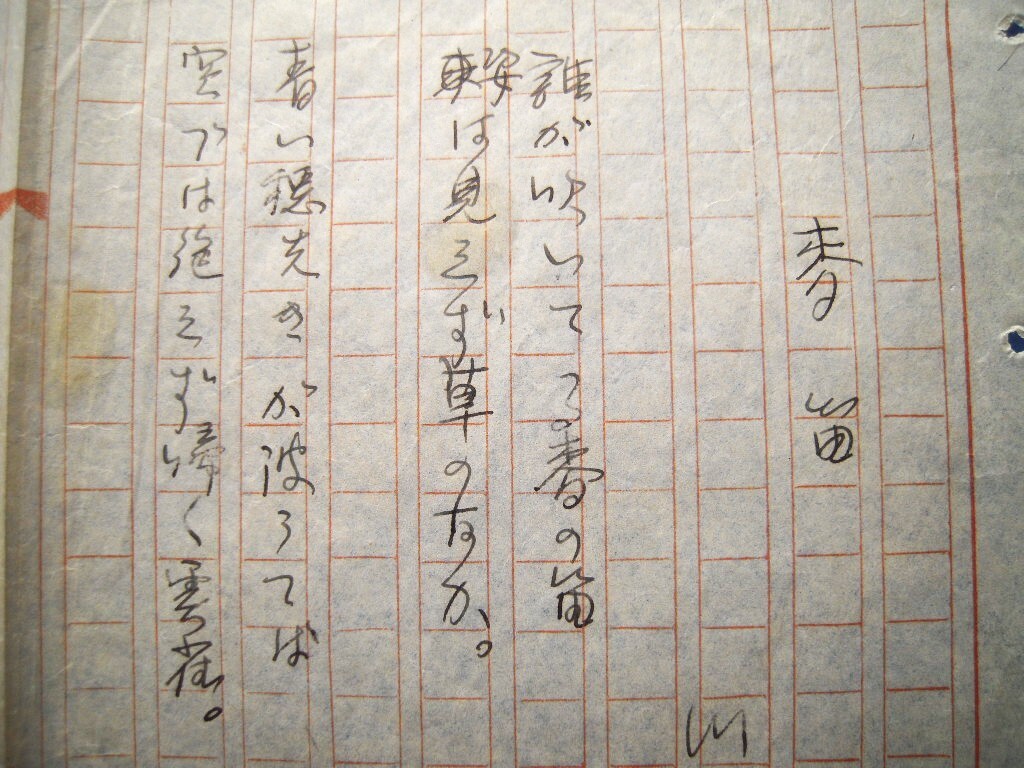 麦笛
川
誰が吹いてる。春の笛
姿は見えず草のなか。
青い穂先きが波うてば
空では絶えず啼く雲雀。